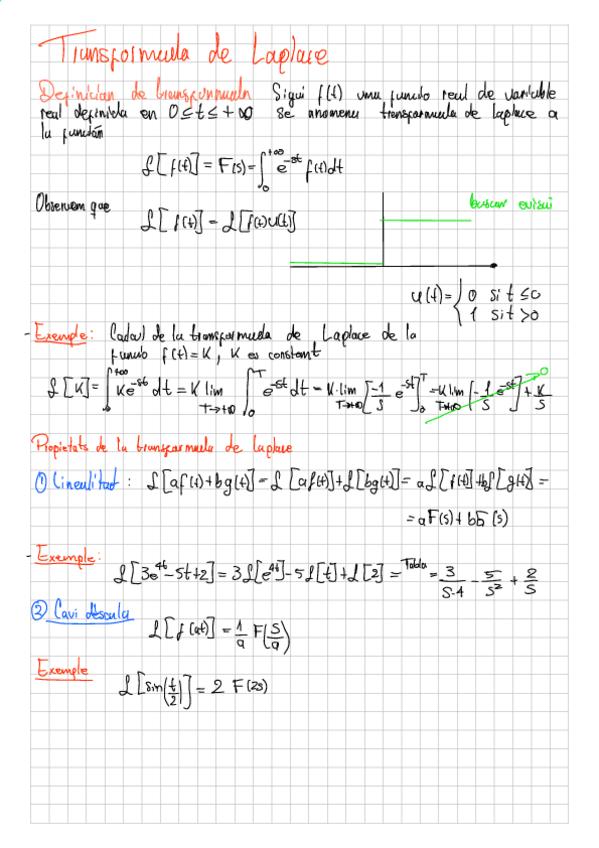 Transformada de Laplace
Definician de transformada Sigui f(t) una funcio real de variable
real definida en 0≤t≤+∞ Se anomena transformada de laplace a
la función
L[f(t)] = F(s) = ∫₀^{+∞} e^{-st} f(t)dt
Observem que
L[f(t)] = L[f(t)u(t)]
buscar
u(t) = { 0 si t ≤0
1 si t >0
- Exemple: Calcul de la transformada de Laplace de la
funcio f(t) = K, K es constant
L[K] = ∫₀^{+∞} Ke^{-st} dt = K lim_{T→+∞} ∫₀^T e^{-st} dt = K·lim_{T→+∞} [-1/s e^{-st}]₀^T = K lim_{T→+∞} [-1/s e^{-st}] + K/s → 0
Propietats de la transformada de laplace
① Linealitat: L[af(t)+bg(t)] = L[af(t)]+L[bg(t)] = aL[f(t)]+bL[g(t)] =
= aF(s) + bG(s)
- Exemple:
L[3e^{4t} - 5t+2] = 3L[e^{4t}] - 5L[t] + L[2] = Taula = 3/(s-4) - 5/s² + 2/s
② Cavi d'escala
L[f(at)] = 1/a F(s/a)
Exemple
L[sin(t/2)] = 2 F(2s)